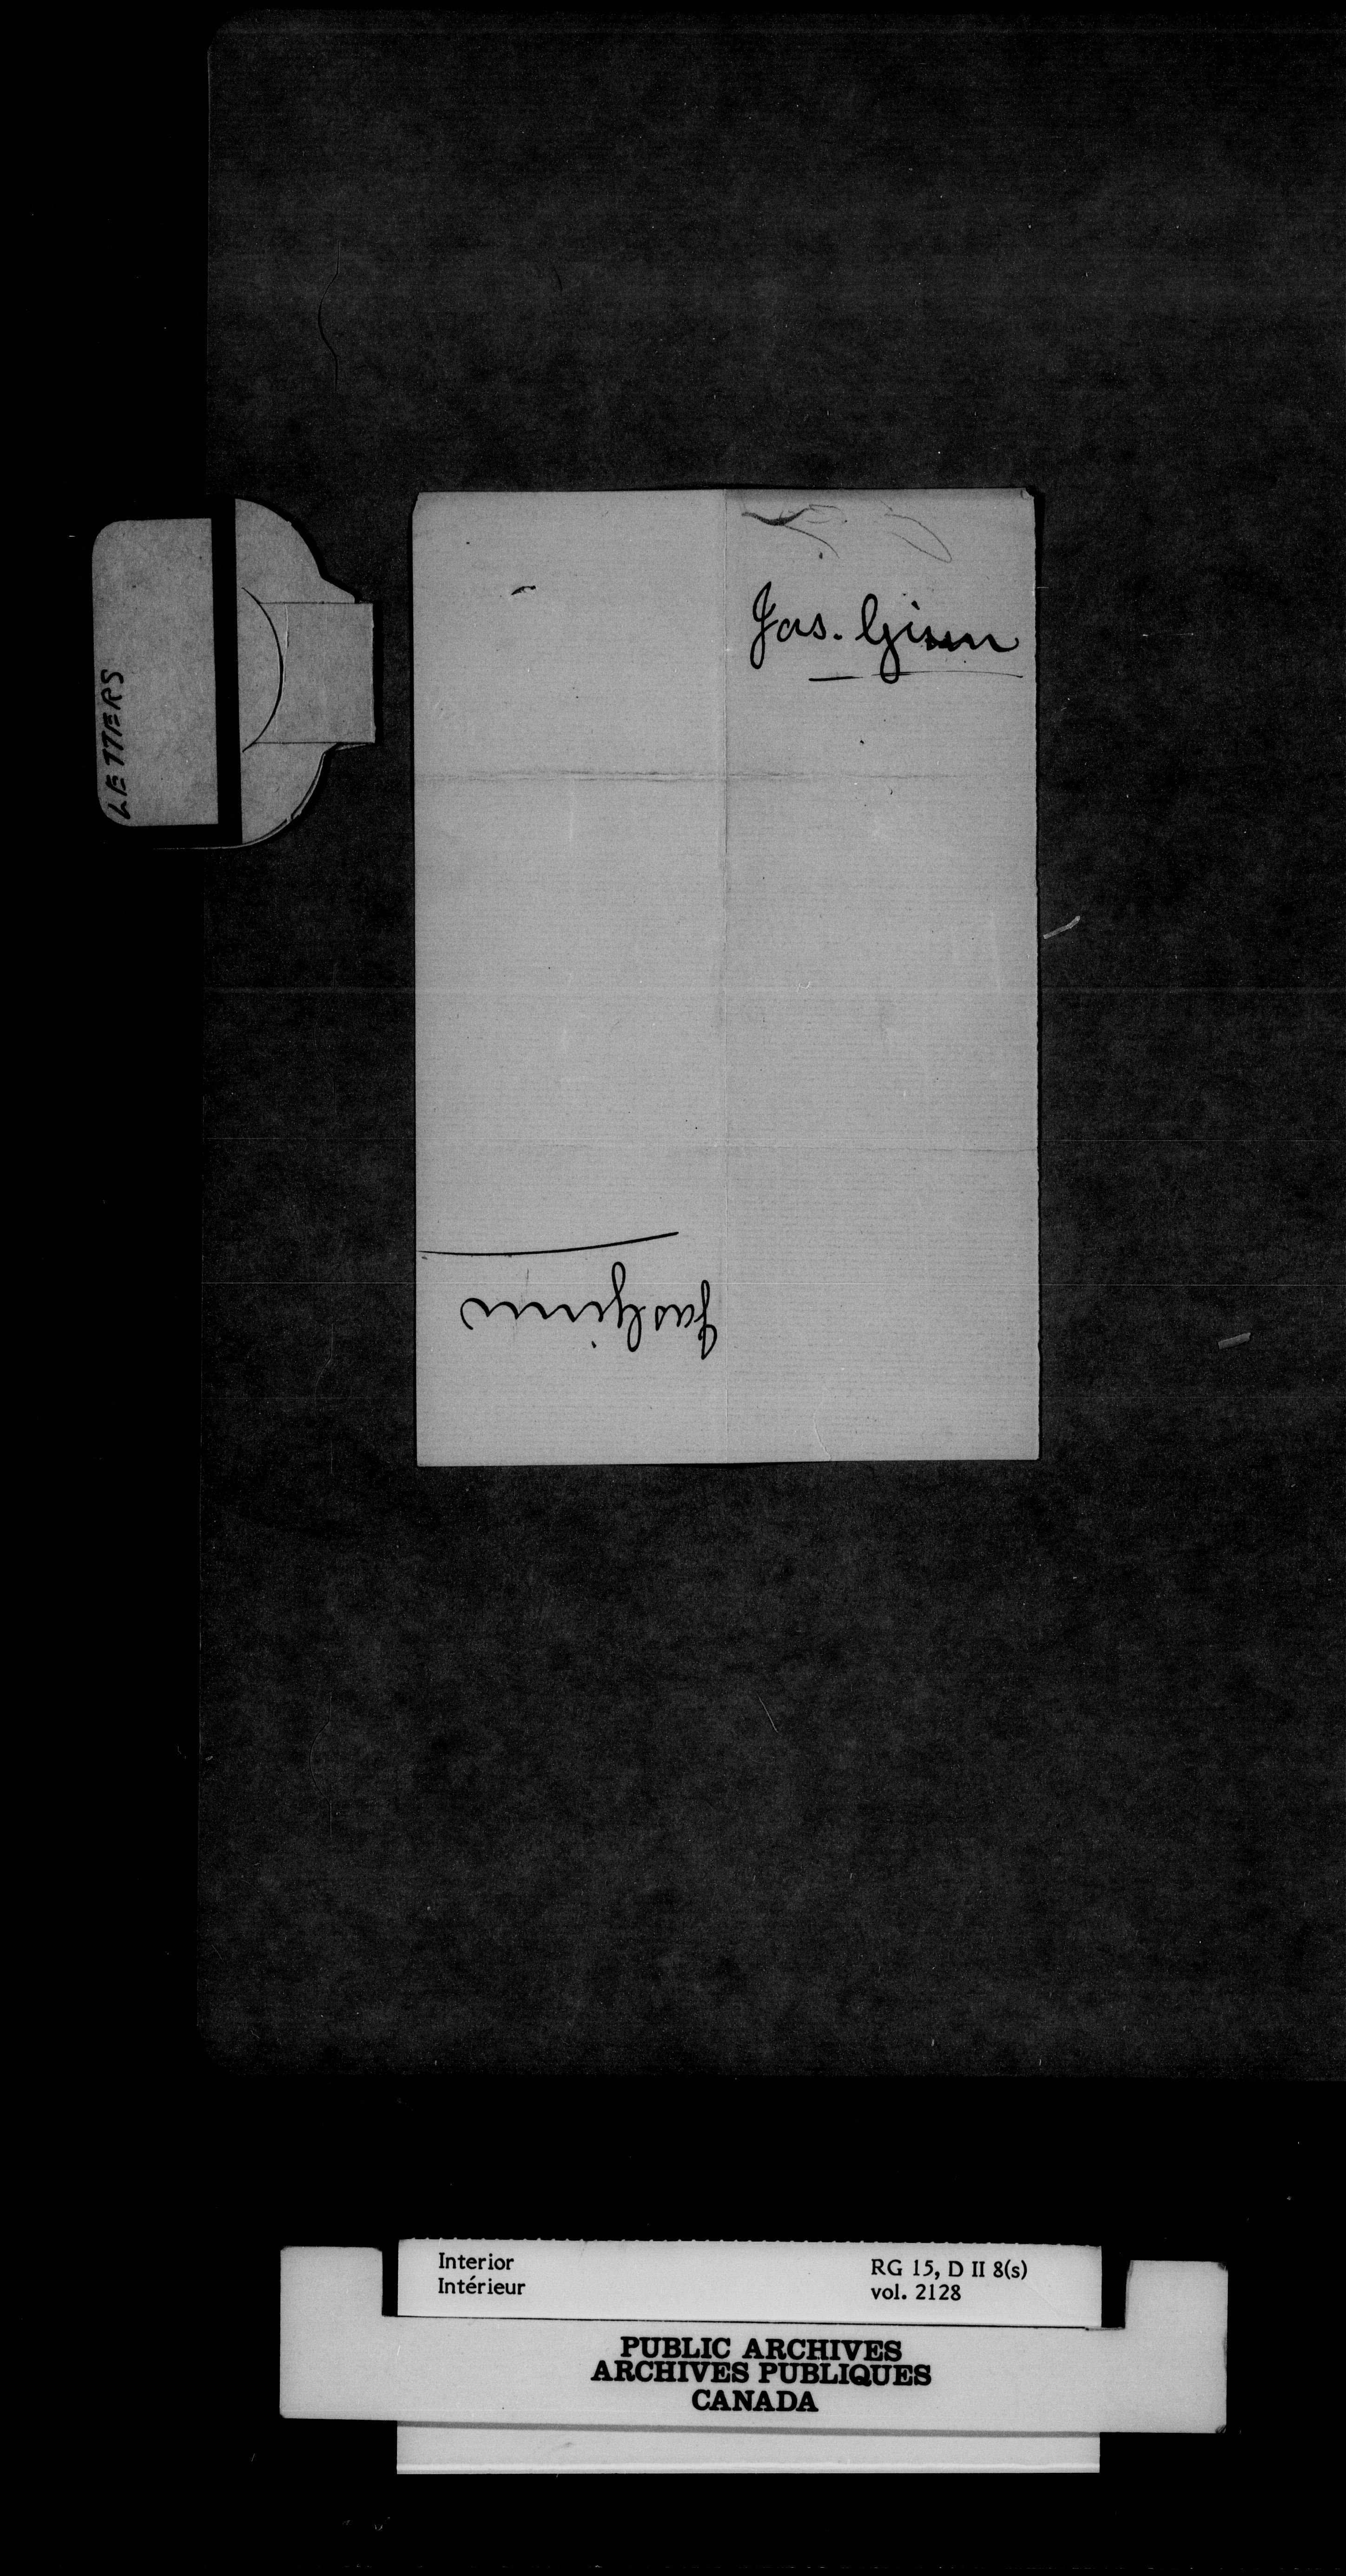 LETTERS
Jas. Ginn
Jas Ginn
Interior
Intérieur
RG 15, D II 8(s)
vol. 2128
PUBLIC ARCHIVES
ARCHIVES PUBLIQUES
CANADA